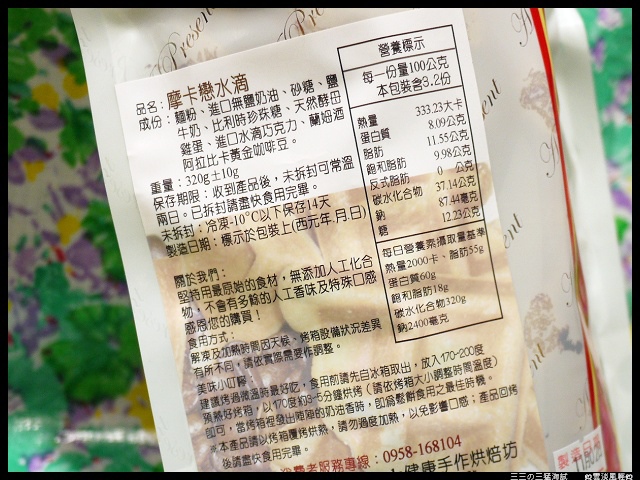 品名：摩卡戀水滴
成份：麵粉、進口無鹽奶油、砂糖、鹽
牛奶、比利時珍珠糖、天然酵母
雞蛋、進口水滴巧克力、蘭姆酒
阿拉比卡黃金咖啡豆。
重量：320g±10g
保存期限：收到產品後，未拆封可常溫
兩日。已拆封請盡快食用完畢。
未拆封：冷凍-10℃以下保存14天
製造日期：標示於包裝上(西元年.月.日)
關於我們：
堅持用最原始的食材，無添加人工化合
物，不會有多餘的人工香味及特殊口感
感恩您的購買！
食用方式：
解凍及加熱時間因天候、烤箱設備狀況差異
有所不同，請依實際需要作調整。
美味小叮嚀
建議烤過微溫時最好吃，食用前請先自冰箱取出，放入170-200度
預熱好烤箱，以170度約3-5分鐘烘烤（請依烤箱大小調整時間溫度）
即可，當烤箱裡發出陣陣的奶油香時，即為鬆餅食用之最佳時機。
※本產品請以烤箱覆烤烘熱，請勿過度加熱，以免影響口感；產品回烤
後請盡快食用完畢。
消費者服務專線：0958-168104
健康手作烘焙坊
營養標示
每一份量100公克
本包裝含3.2份
熱量 333.23大卡
蛋白質 8.09公克
脂肪 11.55公克
飽和脂肪 9.98公克
反式脂肪 0 公克
碳水化合物 37.14公克
鈉 87.44毫克
糖 12.23公克
每日營養素攝取量基準
熱量2000卡、脂肪55g
蛋白質60g
飽和脂肪18g
碳水化合物320g
鈉2400毫克
Present
三三の三猛海賊
雲淡風輕